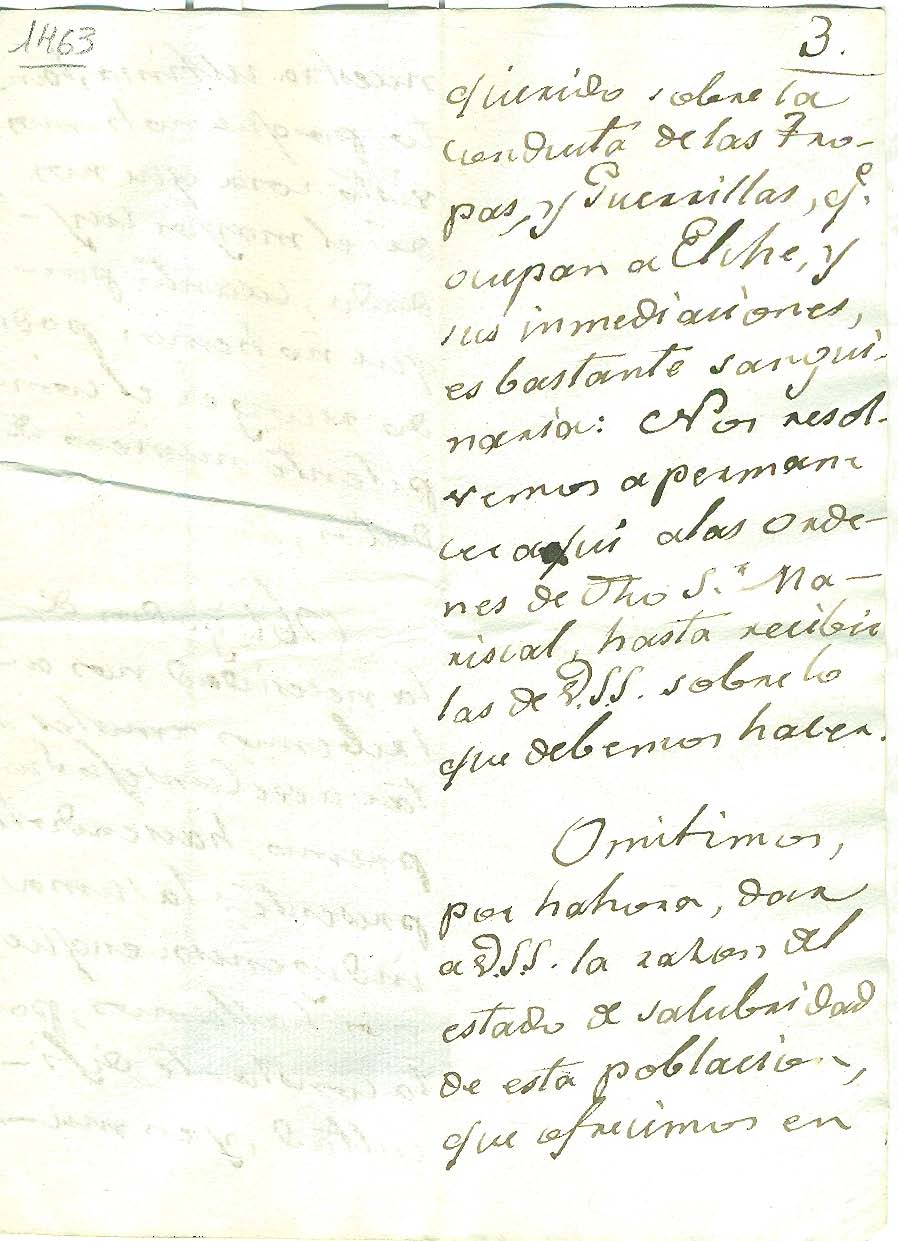 1463
3.
querido sobre la
conducta de las Tro-
pas, y Guerrillas, q.e
ocupan a Elche, y
sus inmediaciones,
es bastante sangui-
naria: Nos resol-
vemos a permane
cer aqui a las orde-
nes de dho S.r Ma-
riscal, hasta recibir
las de V.S.S. sobre lo
que debemos hacer.
Omitimos,
por hahora, dar
a V.S.S. la razon del
estado de salubridad
de esta poblacion,
que ofrecimos en